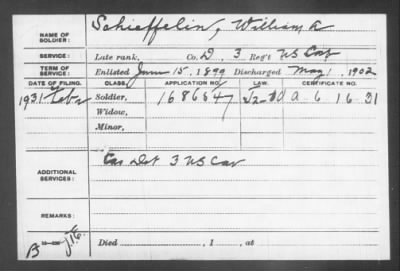 NAME OF SOLDIER: Schieffelin, William A
SERVICE: Late rank, Co. D, 3 Reg't US Cav
TERM OF SERVICE: Enlisted June 15, 1899 Discharged May 1, 1902
DATE OF FILING. CLASS. APPLICATION NO. LAW. CERTIFICATE NO.
1931 Feb Soldier, 1686847 a 6 16 31
Widow,
Minor,
ADDITIONAL SERVICES: Det 3 US Cav
REMARKS:
Died , 1 , at